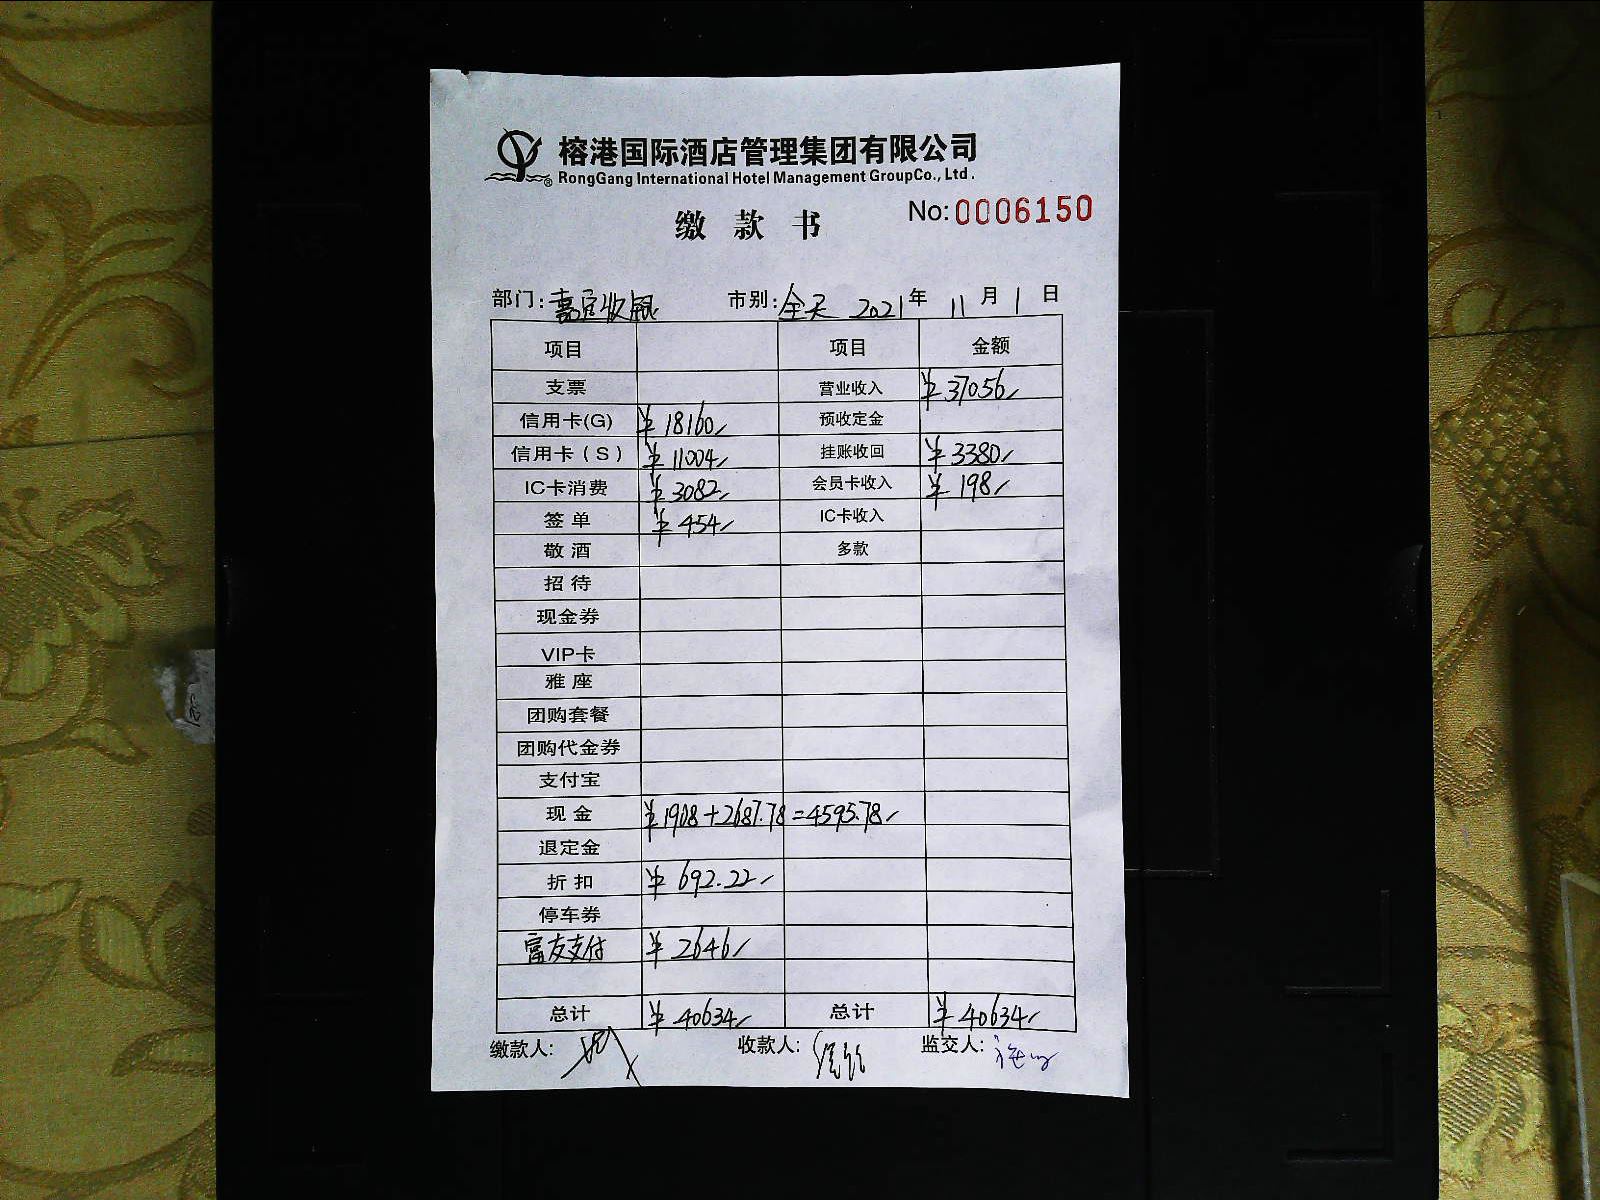 榕港国际酒店管理集团有限公司
RongGang International Hotel Management GroupCo., Ltd.
缴 款 书
No:0006150
部门: 嘉宾收银 市别: 全天 2021 年 11 月 1 日
项目 项目 金额
支票 营业收入 ¥37056
信用卡(G) ¥18160 预收定金
信用卡(S) ¥11004 挂账收回 ¥3380
IC卡消费 ¥3082 会员卡收入 ¥198
签 单 ¥454 IC卡收入
敬 酒 多款
招 待
现金券
VIP卡
雅 座
团购套餐
团购代金券
支付宝
现 金 ¥1908+2687.78=4595.78
退定金
折 扣 ¥692.22
停车券
富友支付 ¥2646
总计 ¥40634 总计 ¥40634
缴款人: 收款人: 监交人: